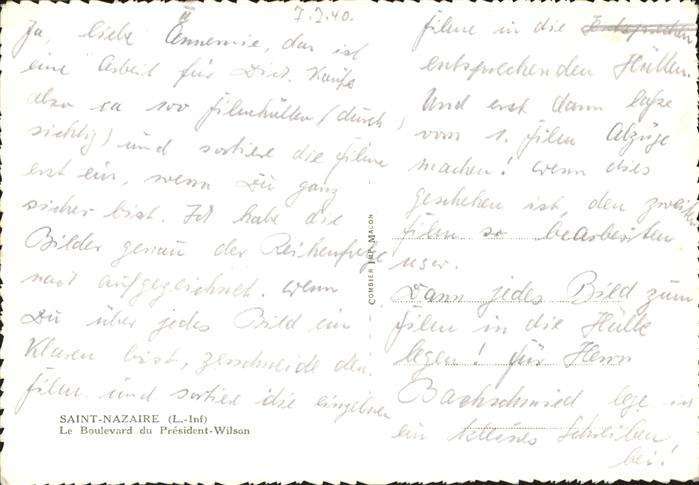 7.7.40.
Ja, liebe Annemie, das ist
eine Arbeit für Dich. Kaufe
also ca 100 Filmhüllen (durch
sichtig) und sortiere die Filme
erst ein, wenn Du ganz
sicher bist. Ich habe die
Bilder genau der Reihenfolge
nach aufgezeichnet. Wenn
Du über jedes Bild im
Klaren bist, zerschneide den
Film und sortiere die einzelnen
SAINT-NAZAIRE (L.-Inf)
Le Boulevard du Président-Wilson
COMBIER IMP. MACON
Filme in die entsprechen
entsprechenden Hüllen.
Und erst dann lasse
vom 1. Film Abzüge
machen! Wenn dies
geschehen ist, den zweiten
Film so bearbeiten
usw.
Dann jedes Bild zum
Film in die Hülle
legen! Für Herrn
Bachschmied lege
ein kleines Schreiben
bei!